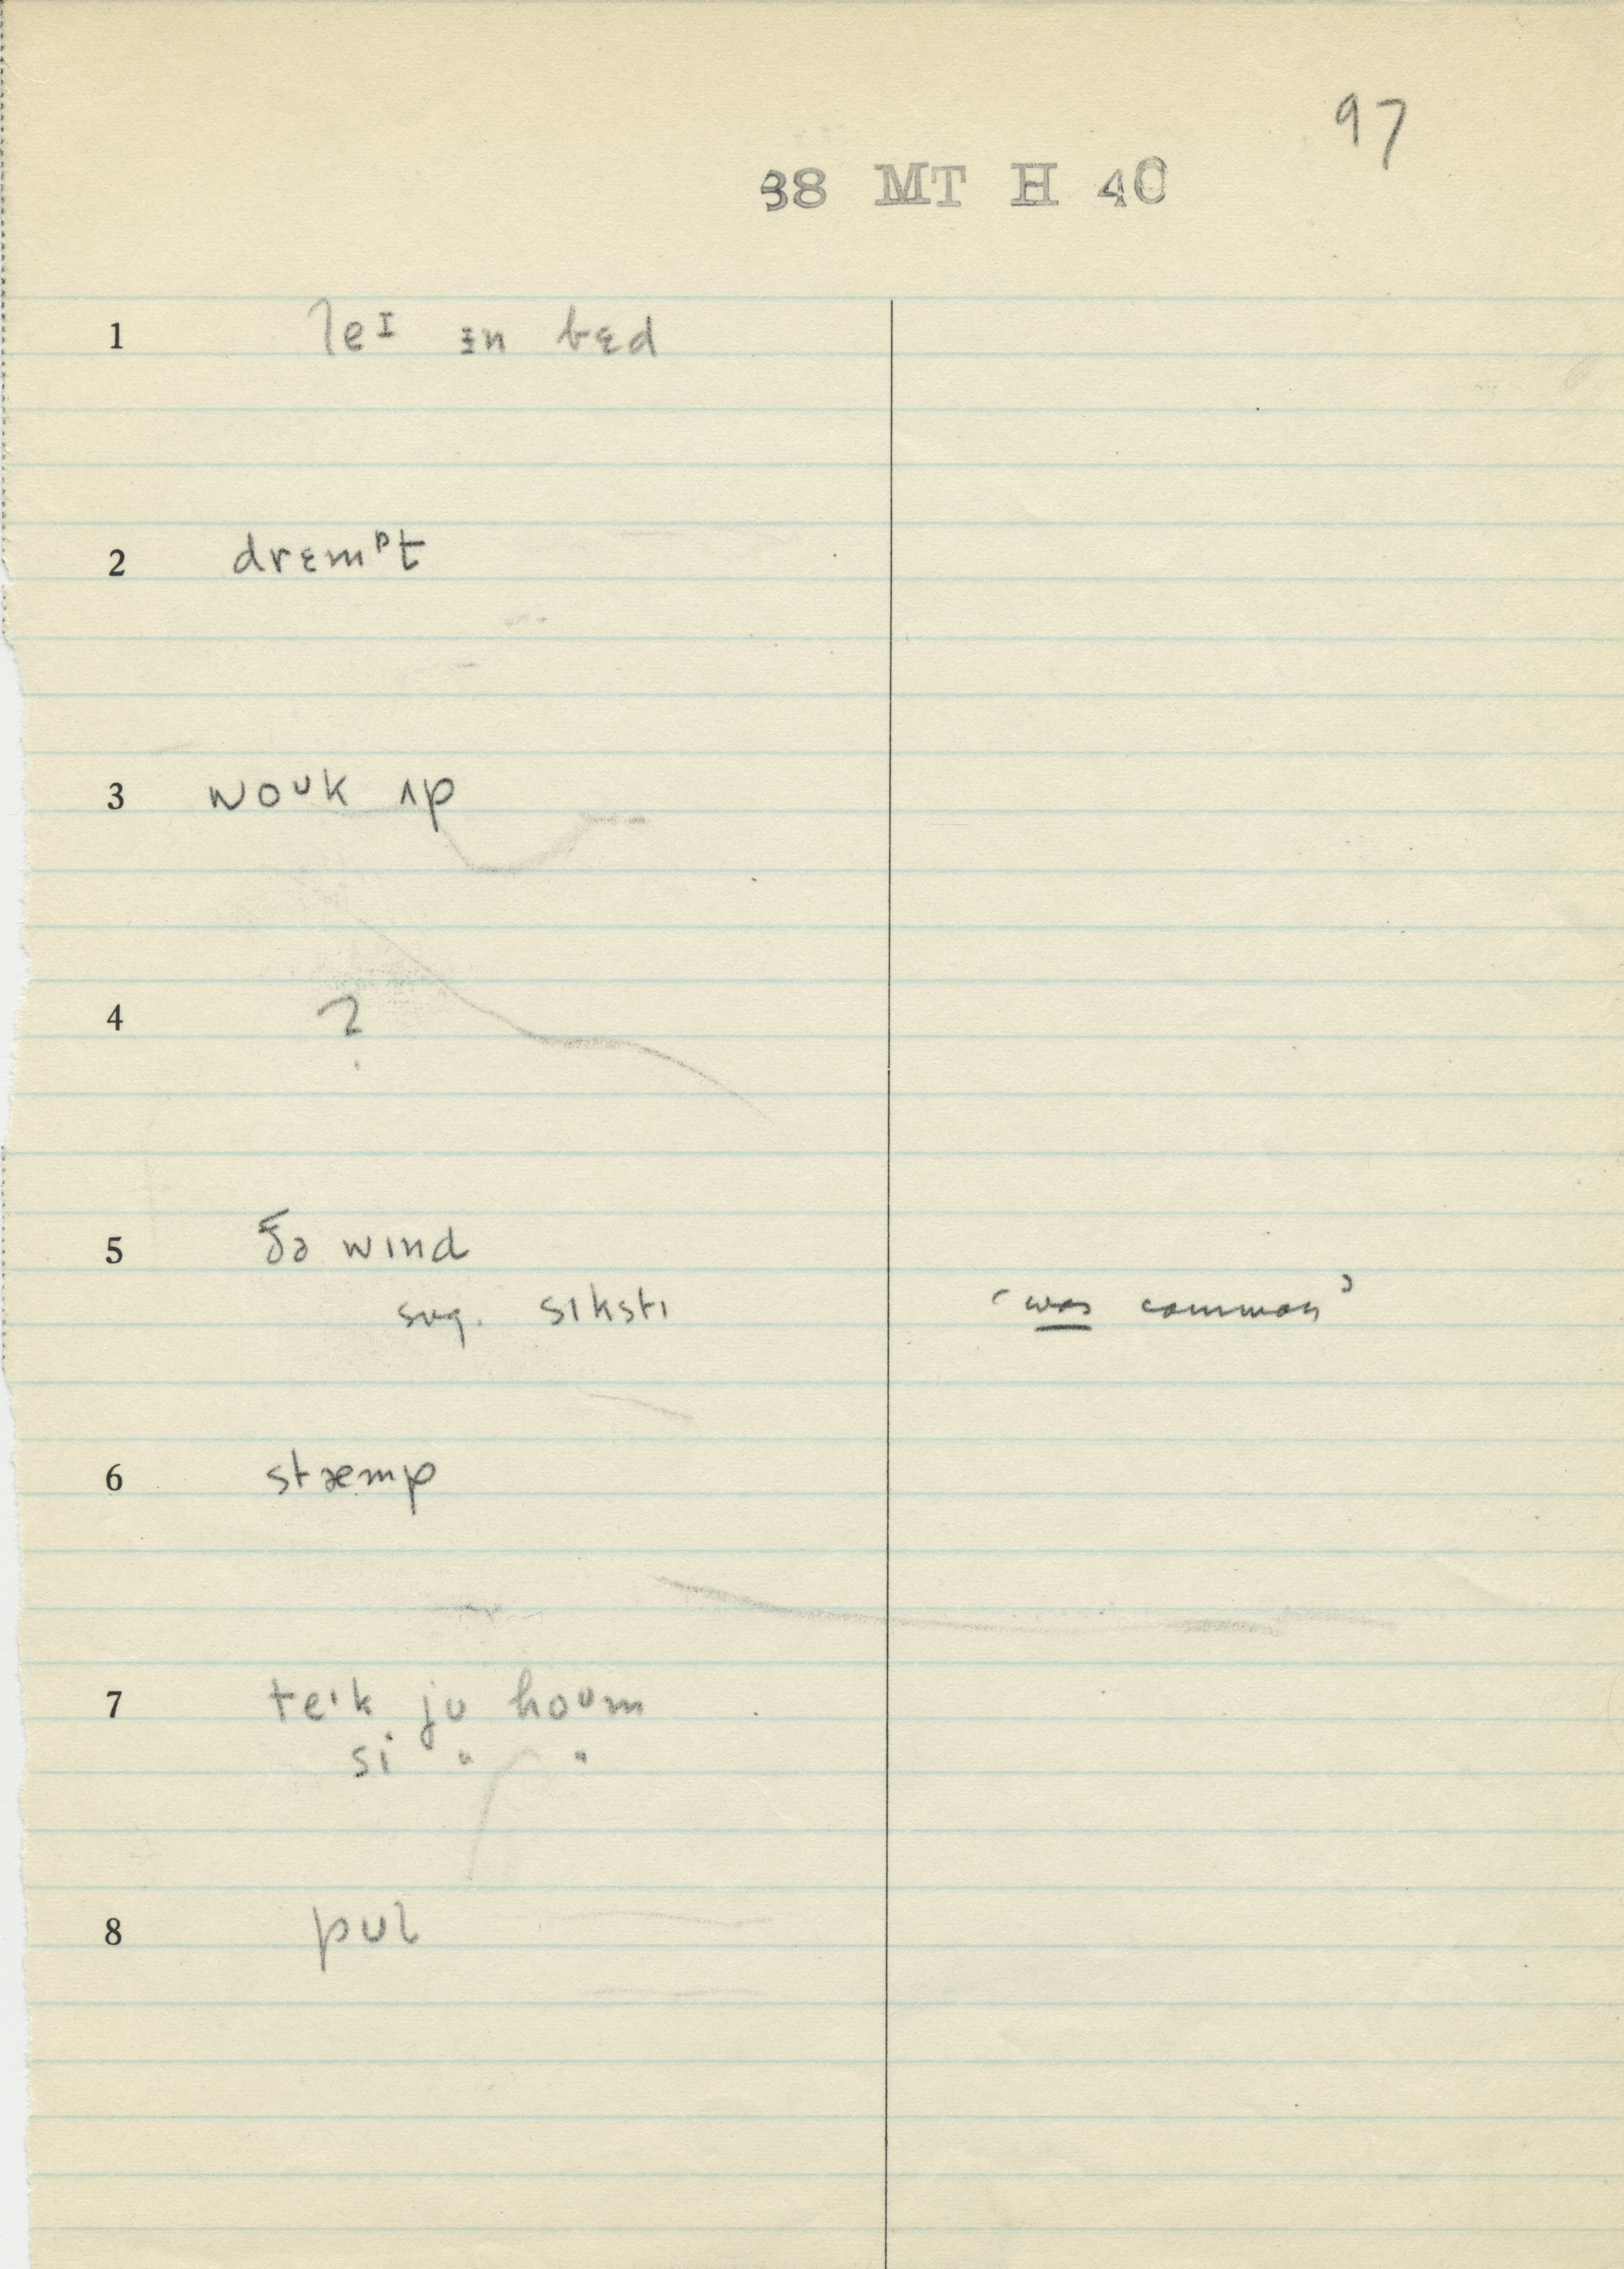 97
38 MT H 40
1 leᴵ ᵻn bɛd
2 drɛmᵖt
3 woᶷk ʌp
4 ?
5 ðə wɪnd
sug. sɪkstɪ ‘was common’
6 stæmp
7 teᶦk ju hoᶷm
si " "
8 pʊl